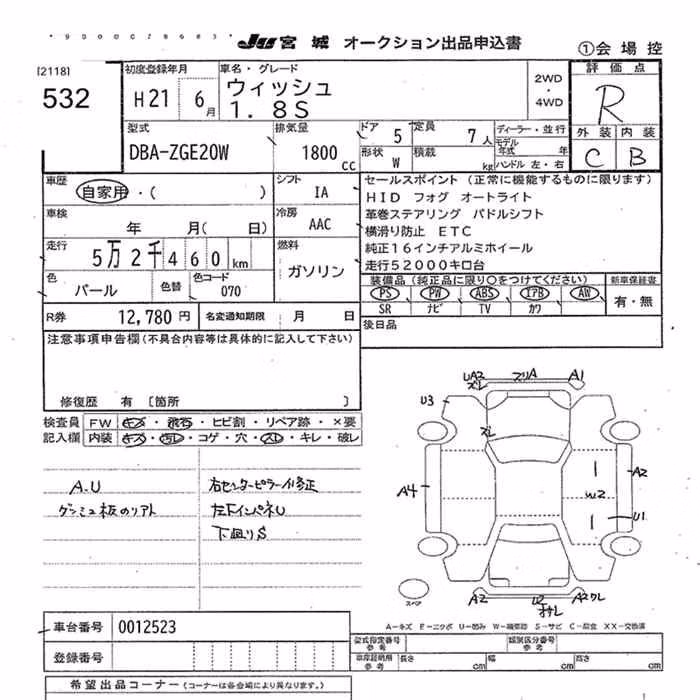 JU 宮城 オークション出品申込書
①会場控
[2118]
532
初度登録年月
H21 6月
車名・グレード
ウィッシュ
1.8S
2WD
・
4WD
評価点
R
外装 内装
C B
型式
DBA-ZGE20W
排気量
1800 cc
ドア 5
定員 7人
形状 W
積載 kg
ディーラー・並行
モデル年式 年
ハンドル 左・右
車歴
自家用・( )
シフト
IA
車検
年 月( 日)
冷房
AAC
走行
5万2千460km
燃料
ガソリン
色
パール
色替
色コード
070
セールスポイント(正常に機能するものに限ります)
HID フォグ オートライト
革巻ステアリング パドルシフト
横滑り防止 ETC
純正16インチアルミホイール
走行52000キロ台
装備品(純正品に限り○をつけてください)
新車保証書
PS PW ABS エアB AW
SR ナビ TV カワ
有・無
R券 12,780円
名変通知期限 月 日
後日品
注意事項申告欄(不具合内容等は具体的に記入して下さい)
修復歴 有 [箇所 ]
検査員 FW キズ・飛石・ヒビ割・リペア跡・×要
記入欄 内装 キズ・汚レ・コゲ・穴・スレ・キレ・破レ
A.U
ダッシュ板のリアト
右センターピラー修正
左下インパネU
下廻りS
UA2
ズレ
A1
U3
ズレ
A4
A2
W2
U1
スペア
A2
U2
オサレ
A2ワレ
A-キズ E-エクボ U-凹み W-補修跡 S-サビ C-腐食 XX-交換済
車台番号 0012523
登録番号
型式指定番号
参考
類別区分番号
参考
車庫証明用
参考
長さ cm 幅 cm 高さ cm
希望出品コーナー(コーナーは各会場により異ります)